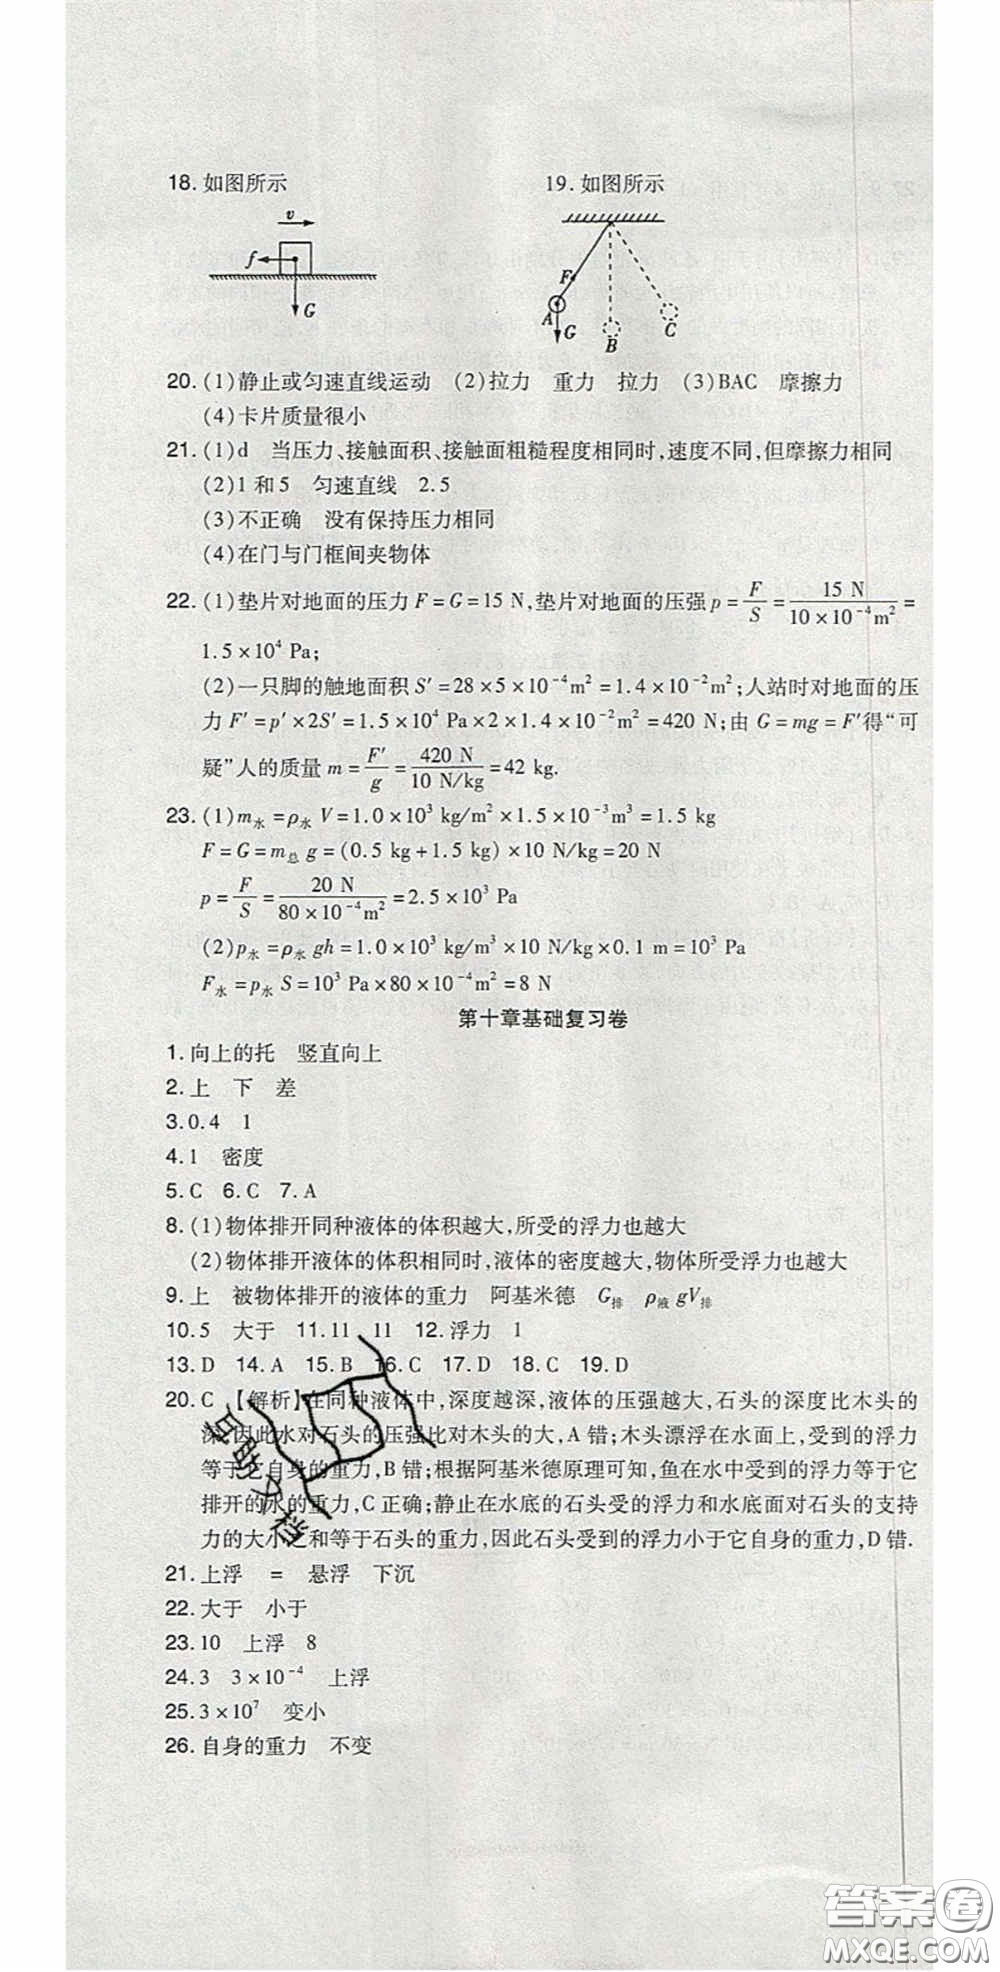 18. 如图所示　19. 如图所示
v
f
G
F
A
G
B
C
20. (1)静止或匀速直线运动　(2)拉力　重力　拉力　(3)BAC　摩擦力
(4)卡片质量很小
21. (1)d　当压力、接触面积、接触面粗糙程度相同时,速度不同,但摩擦力相同
(2)1 和 5　匀速直线　2.5
(3)不正确　没有保持压力相同
(4)在门与门框间夹物体
22. (1)垫片对地面的压力 F=G=15 N,垫片对地面的压强 p=F/S=15 N/(10×10⁻⁴m²)=
1.5×10⁴ Pa;
(2)一只脚的触地面积 S′=28×5×10⁻⁴m²=1.4×10⁻²m²;人站时对地面的压
力 F′=p′×2S′=1.5×10⁴ Pa×2×1.4×10⁻²m²=420 N;由 G=mg=F′得“可
疑”人的质量 m=F′/g=420 N/(10 N/kg)=42 kg.
23. (1)m水=ρ水 V=1.0×10³ kg/m²×1.5×10⁻³m³=1.5 kg
F=G=m总 g=(0.5 kg+1.5 kg)×10 N/kg=20 N
p=F/S=20 N/(80×10⁻⁴m²)=2.5×10³ Pa
(2)p水=ρ水 gh=1.0×10³ kg/m³×10 N/kg×0.1 m=10³ Pa
F水=p水 S=10³ Pa×80×10⁻⁴m²=8 N
第十章基础复习卷
1. 向上的托　竖直向上
2. 上　下　差
3. 0.4　1
4. 1　密度
5. C　6. C　7. A
8. (1)物体排开同种液体的体积越大,所受的浮力也越大
(2)物体排开液体的体积相同时,液体的密度越大,物体所受浮力也越大
9. 上　被物体排开的液体的重力　阿基米德　G排　ρ液 gV排
10. 5　大于　11. 11　11　12. 浮力　1
13. D　14. A　15. B　16. C　17. D　18. C　19. D
20. C　【解析】在同种液体中,深度越深,液体的压强越大,石头的深度比木头的
深,因此水对石头的压强比对木头的大,A 错;木头漂浮在水面上,受到的浮力
等于它自身的重力,B 错;根据阿基米德原理可知,鱼在水中受到的浮力等于它
排开的水的重力,C 正确;静止在水底的石头受的浮力和水底面对石头的支持
力的大小之和等于石头的重力,因此石头受到的浮力小于它自身的重力,D 错.
21. 上浮　=　悬浮　下沉
22. 大于　小于
23. 10　上浮　8
24. 3　3×10⁻⁴　上浮
25. 3×10⁷　变小
26. 自身的重力　不变
答案圈
MXQE.COM